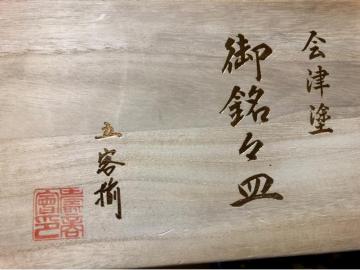 会津塗
御銘々皿
五客揃